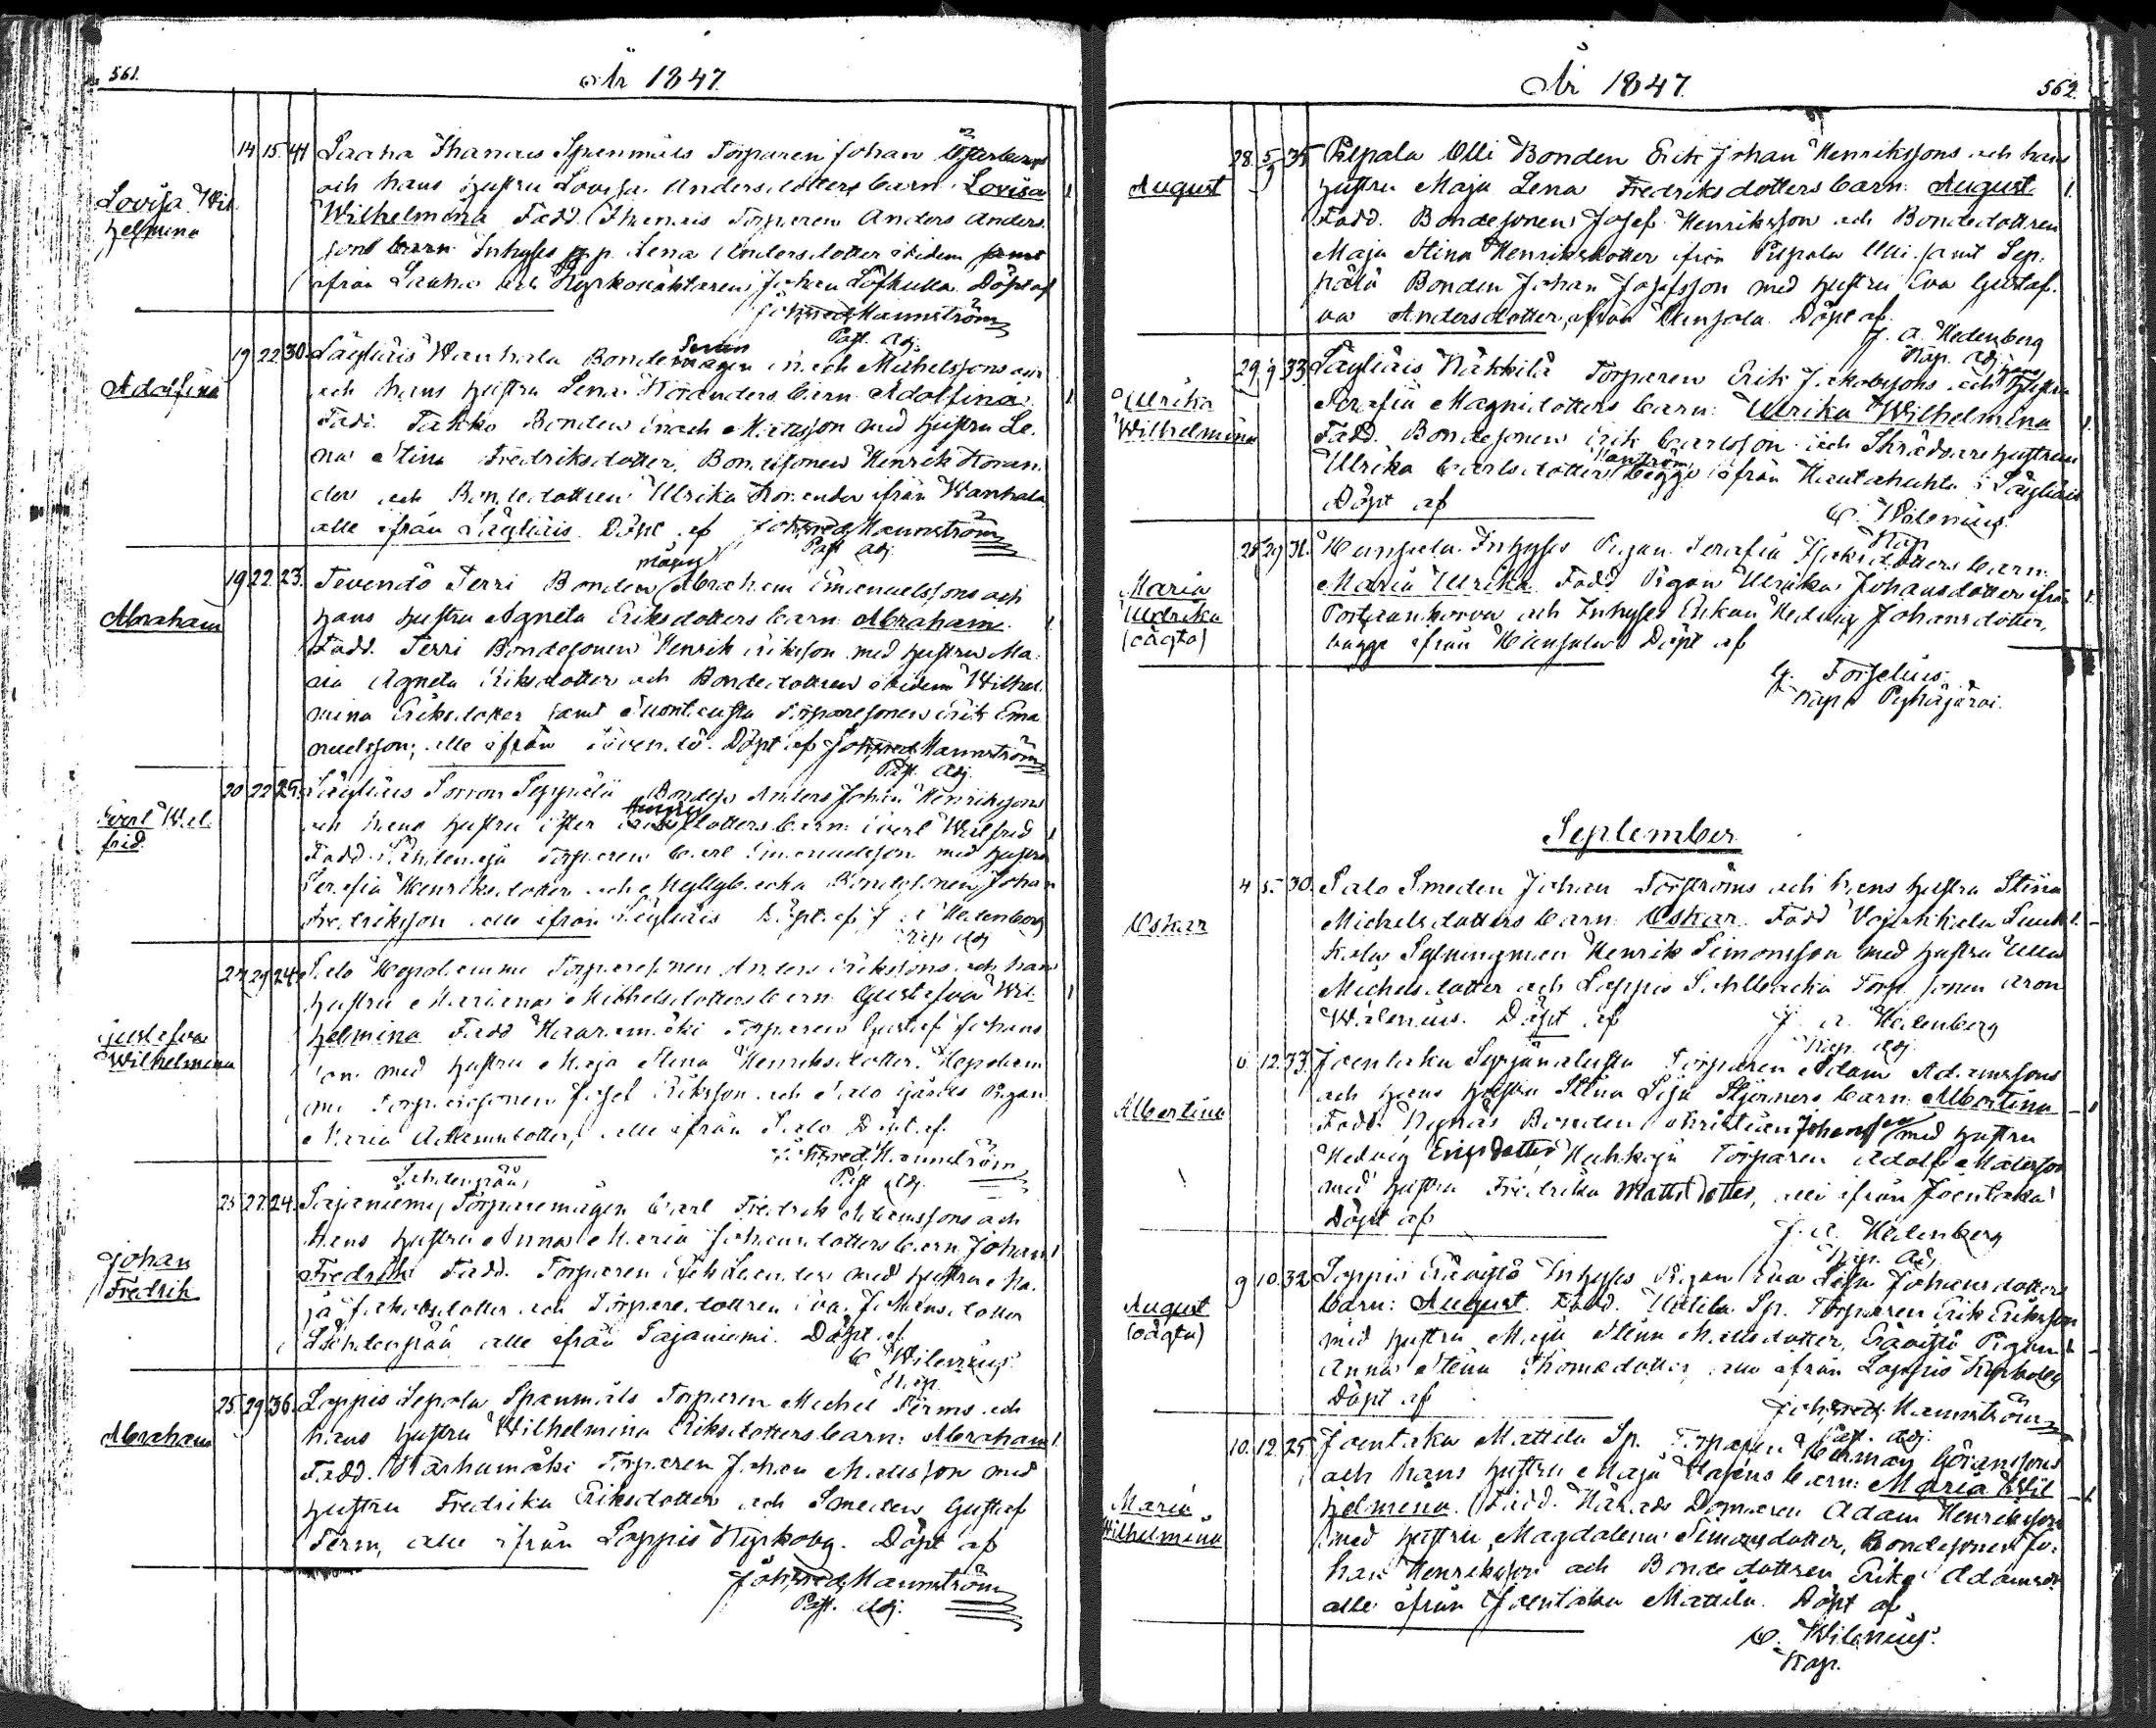 561.
År 1847.
Lovisa Wil
helmina
14 15 41 Laaha Thanais Spenmäls Torparen Johan Österberg
och hans hustru Lovisa Andersdotters barn Lovisa 1
Wilhelmina Fadd. Thanais Torparen Anders Anders
sons barn Inhyses p. Lena Andersdotter ibidem samt
ifrån Laaha och Kyrkovaktaren Johan Löfkulla Döpt af
Joh. Fred. Mannström
Past. Adj.
Adolfina
19 22 30 Säyliäis Wanhala Bondesonen Enoch Michelssons
och hans hustru Lena Koranders barn Adolfina 1
Fadd. Takko Bonden Enoch Mattsson med hustru Le
na Stina Fredriksdotter, Bondesonen Henrik Koran
der och Bondedottren Ulrika Korander ifrån Wanhala
alle ifrån Säyliäis Döpt af Joh. Fred. Mannström
Past. Adj.
Abraham
19 22 23. Tevendö Terri Bonden mågen Abraham Emanuelssons och
hans hustru Agneta Eriksdotters barn Abraham. 1
Fadd. Terri Bondesonen Henrik Eriksson med hustru Ma
ria Agneta Eriksdotter och Bondedottren ibidem Wilhel
mina Eriksdotter samt Torparesonen Erik Ema
nuelsson, alle ifrån Tevendö. Döpt af Joh. Fred. Mannström
Past. Adj.
Evert Wil
frid
20 22 25 Säyliäis Sorron Seppälä Bonden Anders Johan Henrikssons
och hans hustru Ester dotters barn Evert Wilfrid 1
Fadd. Torparen Carl Emanuelsson med hustru
Serafia Henriksdotter och Myllybacka Bondesonen Johan
Fredriksson alle ifrån Säyliäis Döpt af J. A. Hedenberg
Kap. Adj
Gustafva
Wilhelmina
27 29 24 Salo Torparesonen Anders Erikssons och hans
hustru Mariana Michelsdotters barn Gustafva Wil 1
helmina Fadd Haaramäki Torparen Gustaf Johans
son med hustru Maja Stina Henriksdotter.
Torparesonen Josef Eriksson och Salo gårds Pigan
Maria Adamsdotter, alle ifrån Salo Döpt af
Joh. Fred. Mannström
Past. Adj.
Johan
Fredrik
25 27 24. Sajaniemi Torparemågen Carl Fredrik Adamssons och
hans hustru Anna Maria Johansdotters barn Johan 1
Fredrik Fadd. Torparen med hustru Ma
ja Jakobsdotter och Torparedottren Eva Johansdotter
alle ifrån Sajaniemi. Döpt af
C. Wilenius
Kap.
Abraham
25 29 36. Loppis Lepola Spanmäls Torparen Michel Ferms och
hans hustru Wilhelmina Eriksdotters barn: Abraham 1
Fadd. Warhumäki Torparen Johan Mattsson med
hustru Fredrika Eriksdotter och Smeden Gustaf
Ferm, alle ifrån Loppis Kyrkoby. Döpt af
Joh. Fred. Mannström
Past. Adj.
År 1847. 562.
August
28 5/9 35 Pilpala Olli Bonden Erik Johan Henrikssons och hans
hustru Maja Lena Fredriksdotters barn: August. 1
Fadd. Bondesonen Josef Henriksson och Bondedottren
Maja Stina Henriksdotter ifrån Pilpala Olli samt Sep
pälä Bonden Johan Josefsson med hustru Eva Gustaf
va Andersdotter, ifrån Hunsala. Döpt af
J. A. Hedenberg
Kap. Adj
Ulrika
Wilhelmina
29 9 33. Säyliäis Näkkilä Torparen Erik Jakobssons och hans hustru
Serafia Magnidotters barn: Ulrika Wilhelmina 1
Fadd. Bondesonen Erik Carlsson och Skräddare hustrun
Ulrika Carlsdotter begge ifrån i Säyliäis
Döpt af
C. Wilenius.
Kap
Maria
Ulrika
(oägta)
28 29 31. Hunsala Inhyses Pigan Serafia Isaksdotters barn:
Maria Ulrika Fadd Pigan Ulrika Johansdotter ifrån 1
Portaankorva och Inhyses Enkan Hedvig Johansdotter,
bägge ifrån Hunsala Döpt af
G. Forselius
Kap. i Pyhäjärvi.
September
Oskar
4 5. 30. Salo Smeden Johan Torströms och hans hustru Stina
Michelsdotters barn: Oskar. Fadd Vojakkala
Henrik Simonsson med hustru Ulla
Michelsdotter och Loppis Torp. sonen Aron
Walenius. Döpt af J. A. Hedenberg
Kap. Adj.
Albertina
6 12 33. Joentaka Syrjänalusta Torparen Adam Adamssons
och hans hustru Stina Lisa Stjerners barn: Albertina
Fadd. Nynäs Bonden Christian Johansson med hustru
Hedvig Ericsdotter Torparen Adolf Matsson
med hustru Fredrika Mattsdotter, alle ifrån Joentaka
Döpt af
J. A. Hedenberg
Kap. Adj
August
(oägta)
9 10 32 Loppis Eräviste Inhyses Pigan Eva Lisa Johansdotters
barn: August. Fadd. Uotila Sp. Torparen Erik Eriksson
med hustru Maja Stina Mattsdotter, Eräviste Pigan
Anna Stina Thomasdotter, alle ifrån Loppis Kyrkoby
Döpt af
Joh. Fred. Mannström
Past. Adj.
Maria
Wilhelmina
10. 12. 25 Joentaka Mattila Sp. Torparen Herman Göranssons
och hans hustru Maja Hagéns barn: Maria Wil
helmina. Fadd. Härads Domaren Adam Henriksson
med hustru, Magdalena Simonsdotter, Bondesonen Jo
han Henriksson och Bondedottren Erika Adamsdr
alle ifrån Joentaka Mattila. Döpt af
C. Wilenius.
Kap.